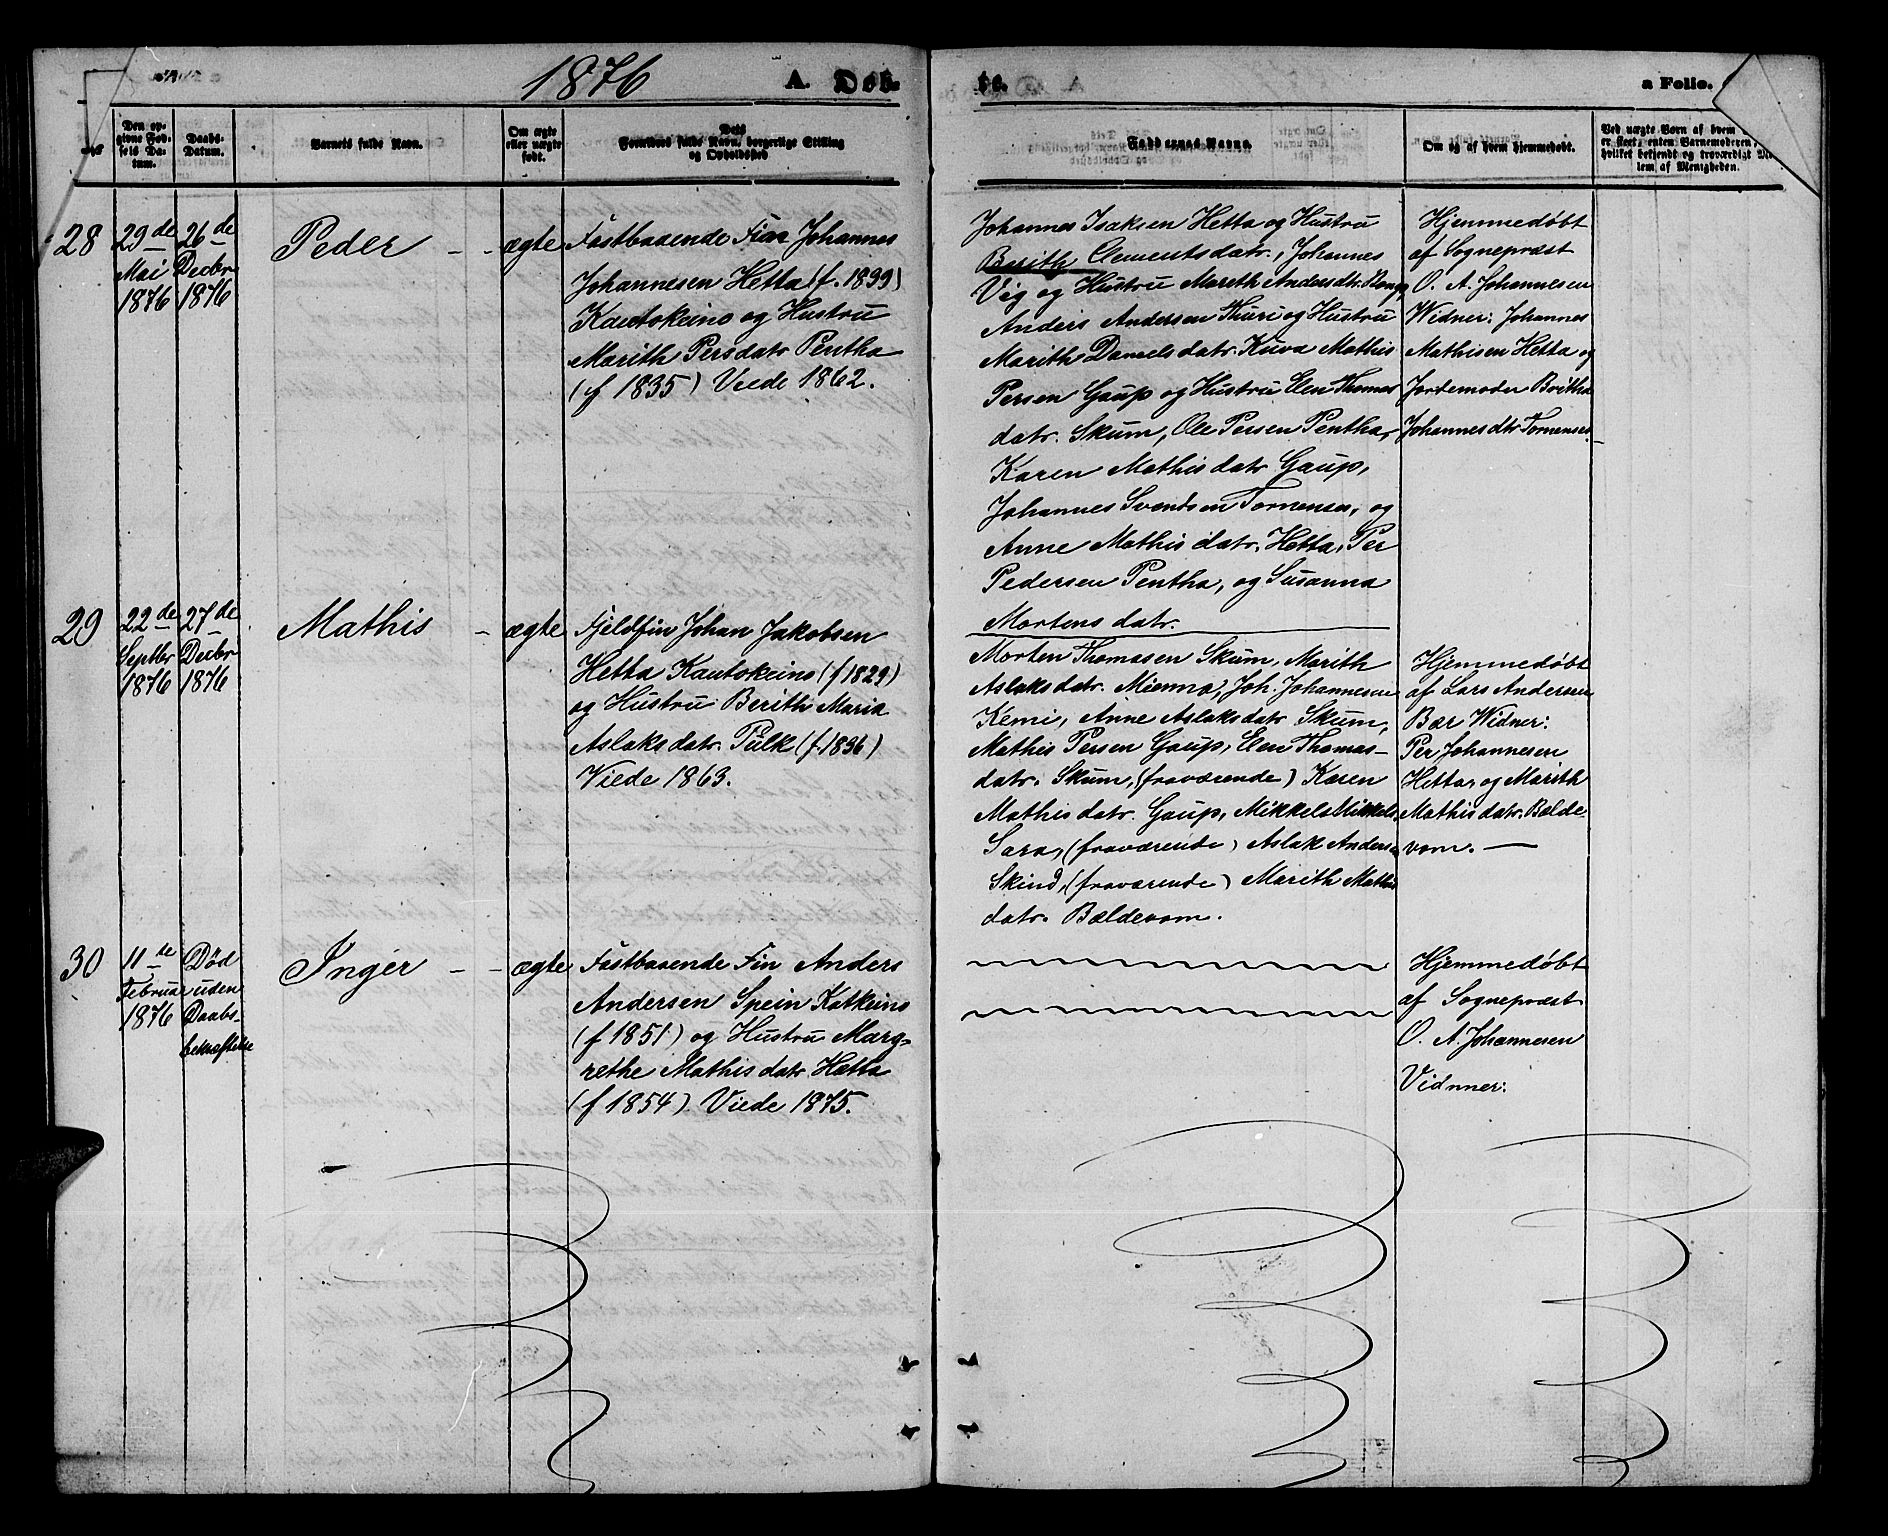 1876
A. Døb
te.
a Folio.
Den op-
givne Fød-
sels Da-
tum.
Daabs-
Datum.
Barnets fulde Navn.
Om ægte
eller uægte
født.
Dets
Forældres fulde Navn, borgerlige Stilling
og Opholdssted
Faddernes Navne.
Om og af hvem hjemmedøbt.
Ved uægte Børn af hvem
er skeet, enten Barnemoderen,
hvilket bekjendt og troværdigt
lem af Menigheden.
28
29de
Mai
1876
26de
Decbr
1876
Peder - -
ægte
Fastboaende Fin Johannes
Johannesen Hetta (f. 1839)
Kautokeino og Hustru
Marith Persdatr Pentha
(f 1835) Viede 1862.
Johannes Isaksen Hetta og Hustru
Berith Clementsdatr., Johannes
Vig og Hustru Mareth Andersdtr.
Anders Andersen Thuri og Hustru
Marith Danielsdatr. Kuva Mathis
Persen Gaup og Hustru Elen Thomas
datr. Skum, Ole Persen Pentha,
Karen Mathisdatr Gaup,
Johannes Svendsen Tornensis, og
Anne Mathisdatr. Hetta, Per
Pedersen Pentha, og Susanna
Mortensdatr.
Hjemmedøbt
af Sognepræst
O. A. Johannesen
Widner: Johannes
Mathisen Hetta og
Jordemoder Britha
Johannesdtr Tornenses.
29
22de
Septbr
1876
27de
Decbr
1876
Mathis -
ægte
Fjeldfin Johan Jakobsen
Hetta Kautokeino (f 1829)
og Hustru Berith Maria
Aslaksdatr. Pulk (f. 1836)
Viede 1863.
Morten Thomasen Skum, Marith
Aslaksdatr. Mienna, Joh. Johannesen
Kemi, Anne Aslaksdatr Skum,
Mathis Persen Gaup, Elen Thomas-
datr. Skum, (fraværende) Karen
Mathisdatr. Gaup, Mikkel Mikkels.
Sara, (fraværende) Aslak Anders
Skind, (fraværende) Marith Mathis
datr. Bældevom.
Hjemmedøbt
af Lars Andersen
Bær Widner:
Per Johannesen
Hetta, og Marith
Mathisdatr. Bælde-
vom. —
30
11te
Februar
1876
Død
uden
Daabs-
bekræftelse
Inger - -
ægte
Fastboaende Fin Anders
Andersen Spein Katkeino
(f 1851) og Hustru Marg-
rethe Mathisdatr. Hætta
(f 1854) Viede 1875.
Hjemmedøbt
af Sognepræst
O. A. Johannesen
Vidnner: